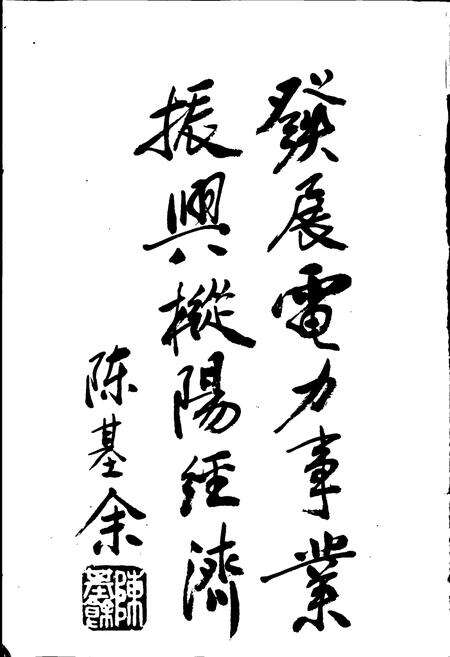 發展電力事業
振興樅陽經濟
陈基余
陳基餘